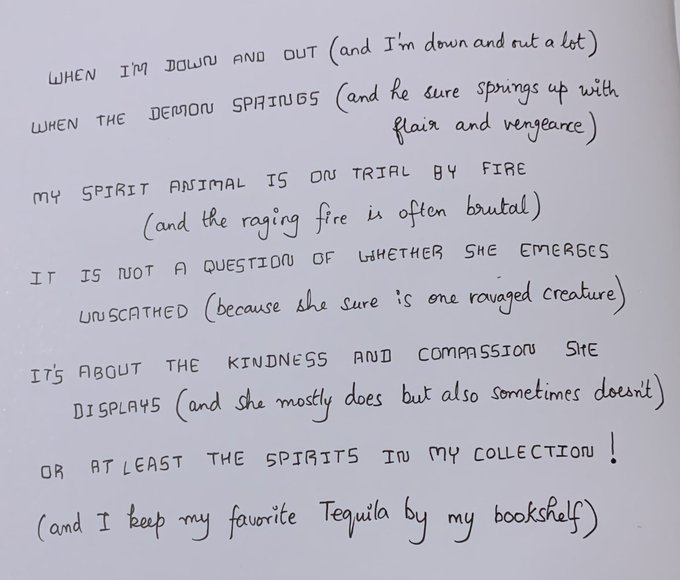 WHEN I'M DOWN AND OUT (and I'm down and out a lot)
WHEN THE DEMON SPRINGS (and he sure springs up with
flair and vengeance)
MY SPIRIT ANIMAL IS ON TRIAL BY FIRE
(and the raging fire is often brutal)
IT IS NOT A QUESTION OF WHETHER SHE EMERGES
UNSCATHED (because she sure is one ravaged creature)
IT'S ABOUT THE KINDNESS AND COMPASSION SHE
DISPLAYS (and she mostly does but also sometimes doesn't)
OR AT LEAST THE SPIRITS IN MY COLLECTION!
(and I keep my favorite Tequila by my bookshelf)